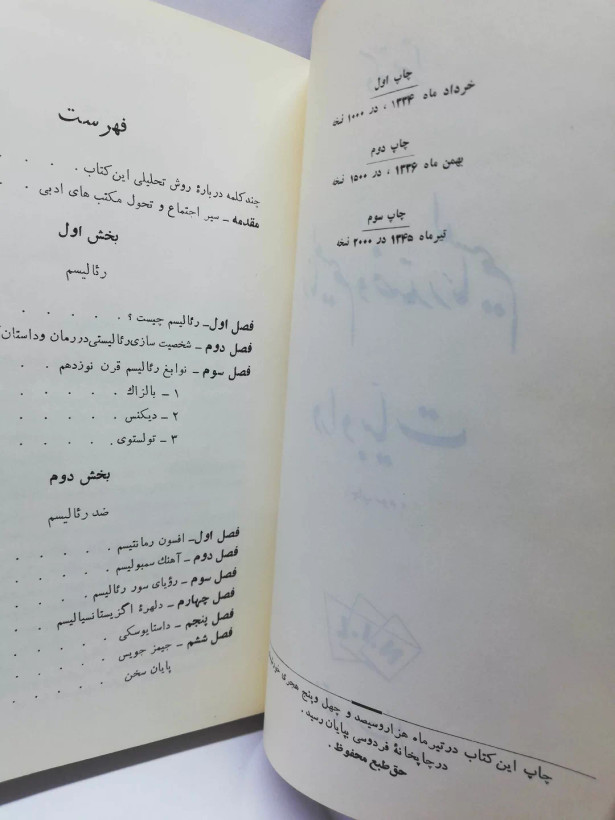 چاپ اول
خرداد ماه ۱۳۳۴ ، در ۱۰۰۰ نسخه
چاپ دوم
بهمن ماه ۱۳۳۶ ، در ۱۵۰۰ نسخه
چاپ سوم
تیرماه ۱۳۴۵ در ۲۰۰۰ نسخه
چاپ این کتاب در تیر ماه هزار و سیصد و چهل و پنج هجری
در چاپخانهٔ فردوسی بپایان رسید .
حق طبع محفوظ .
فهرست
چند کلمه دربارهٔ روش تحلیلی این کتاب . . . .
مقدمه ـ سیر اجتماع و تحول مکتب های ادبی . .
بخش اول
رئالیسم
فصل اول ـ رئالیسم چیست ؟ . . . . .
فصل دوم ـ شخصیت سازی رئالیستی در رمان و داستان
فصل سوم ـ نوابغ رئالیسم قرن نوزدهم . .
۱ ـ بالزاك . . . . .
۲ ـ دیکنس . . . . .
۳ ـ تولستوی . . . . .
بخش دوم
ضد رئالیسم
فصل اول ـ افسون رمانتیسم . . . . .
فصل دوم ـ آهنك سمبولیسم . . . . .
فصل سوم ـ رؤیای سور رئالیسم . . . .
فصل چهارم ـ دلهرهٔ اگزیستانسیالیسم . .
فصل پنجم ـ داستایوسکی . . . . .
فصل ششم ـ جیمز جویس . . . . .
پایان سخن . . . . .